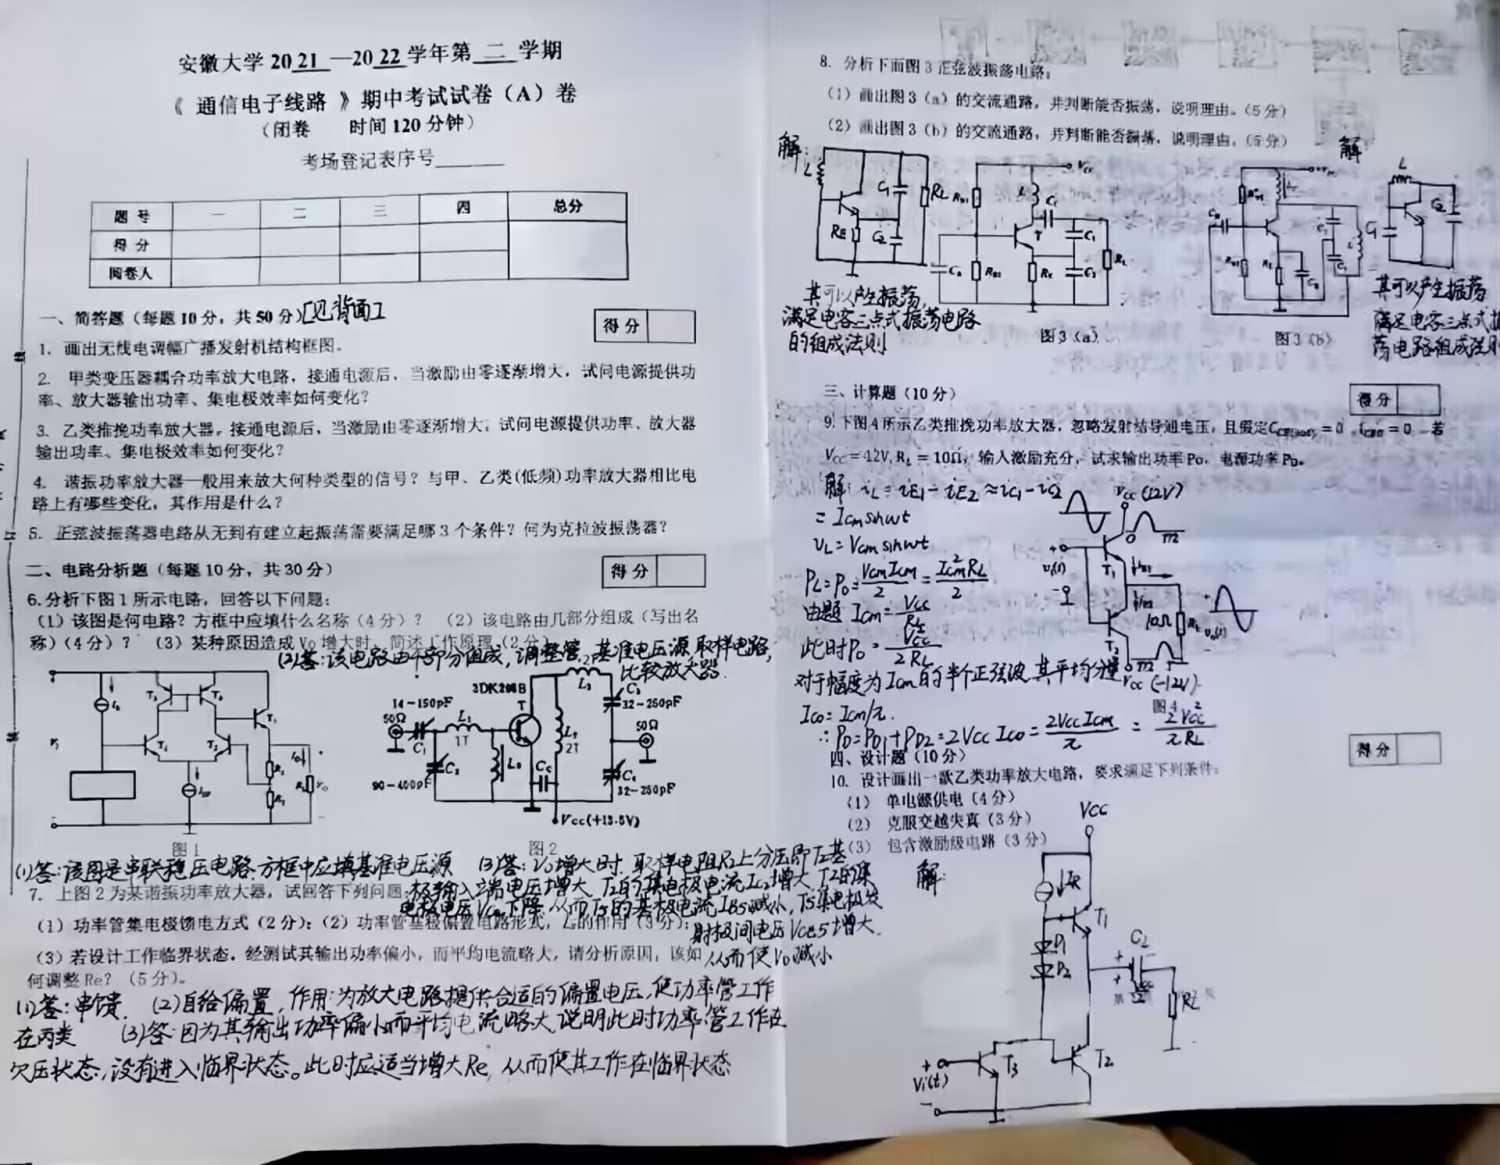 安徽大学 20 21 —20 22 学年第 二 学期
《 通信电子线路 》期中考试试卷（A）卷
（闭卷 时间 120 分钟）
考场登记表序号
题 号 一 二 三 四 总分
得 分
阅卷人
一、简答题（每题 10 分，共 50 分）[见背面]
得 分
1. 画出无线电调幅广播发射机结构框图。
2. 甲类变压器耦合功率放大电路，接通电源后，当激励由零逐渐增大，试问电源提供功
率、放大器输出功率、集电极效率如何变化？
3. 乙类推挽功率放大器，接通电源后，当激励由零逐渐增大，试问电源提供功率、放大器
输出功率、集电极效率如何变化？
4. 谐振功率放大器一般用来放大何种类型的信号？与甲、乙类(低频)功率放大器相比电
路上有哪些变化，其作用是什么？
5. 正弦波振荡器电路从无到有建立起振荡需要满足哪 3 个条件？何为克拉波振荡器？
二、电路分析题（每题 10 分，共 30 分）
得 分
6.分析下图 1 所示电路，回答以下问题：
（1）该图是何电路？方框中应填什么名称（4 分）？ （2）该电路由几部分组成（写出名
称）（4 分）？ （3）某种原因造成 Vo 增大时，简述工作原理（2 分）
(2)答:该电路由4个部分组成，调整管，基准电压源，取样电路，
比较放大器.
3DK206B
T
14-150pF
50Ω
C₁
L₁
1T
C₂
90-400pF
L₂
2T
C₃
32-250pF
50Ω
C₄
32-250pF
Vcc(+13.5V)
图 1
图 2
(1)答:该图是串联稳压电路.方框中应填基准电压源 (3)答:Vo增大时，取样电阻R2上分压即T2基
极输入端电压增大，T2的集电极电流Ic2增大，T2的集
电极电压Vc2下降，从而T5的基极电流IB5减小，T5集电极发
射极间电压VCE5增大.
从而使Vo减小
7. 上图 2 为某谐振功率放大器，试回答下列问题
（1）功率管集电极馈电方式（2 分）；（2）功率管基极偏置电路形式，的作用（3 分）；
（3）若设计工作临界状态，经测试其输出功率偏小，而平均电流略大，请分析原因，该如
何调整 Re？（5 分）。
(1)答:串馈. (2)自给偏置，作用:为放大电路提供合适的偏置电压，使功率管工作
在丙类 (3)答:因为其输出功率偏小而平均电流略大，说明此时功率管工作在
欠压状态，没有进入临界状态。此时应适当增大Re，从而使其工作在临界状态
8. 分析下面图 3 正弦波振荡电路：
（1）画出图 3（a）的交流通路，并判断能否振荡，说明理由。（5 分）
（2）画出图 3（b）的交流通路，并判断能否振荡，说明理由。（5 分）
解:
解
其可以产生振荡，
满足电容三点式振荡电路
的组成法则
图 3（a）
图 3（b）
其可以产生振荡
满足电容三点式振
荡电路组成法则
三、计算题（10 分）
得 分
9.下图 4 所示乙类推挽功率放大器，忽略发射结导通电压，且假定V_CE(sat) = 0，I_CEO = 0，若
Vcc = 12V, R_L = 10Ω，输入激励充分，试求输出功率 Po，电源功率 P_D。
解: i_L = i_E1 - i_E2 ≈ i_C1 - i_C2
= Icm sinwt
v_L = Vcm sinwt
P_L = Po = VcmIcm/2 = Icm²R_L/2
由题 Icm = Vcc/R_L
此时Po = Vcc²/2R_L
对于幅度为Icm的半个正弦波，其平均分量
Ico = Icm/π.
∴ P_D = P_D1 + P_D2 = 2Vcc Ico = 2VccIcm/π = 2Vcc²/πR_L
Vcc (12V)
Vcc (-12V)
图 4
四、设计题（10 分）
得 分
10. 设计画出一款乙类功率放大电路，要求满足下列条件：
（1） 单电源供电（4 分）
（2） 克服交越失真（3 分）
（3） 包含激励级电路（3 分）
解:
VCC
I_R
T1
D1
D2
C_L
R_L
T3
T2
Vi(t)